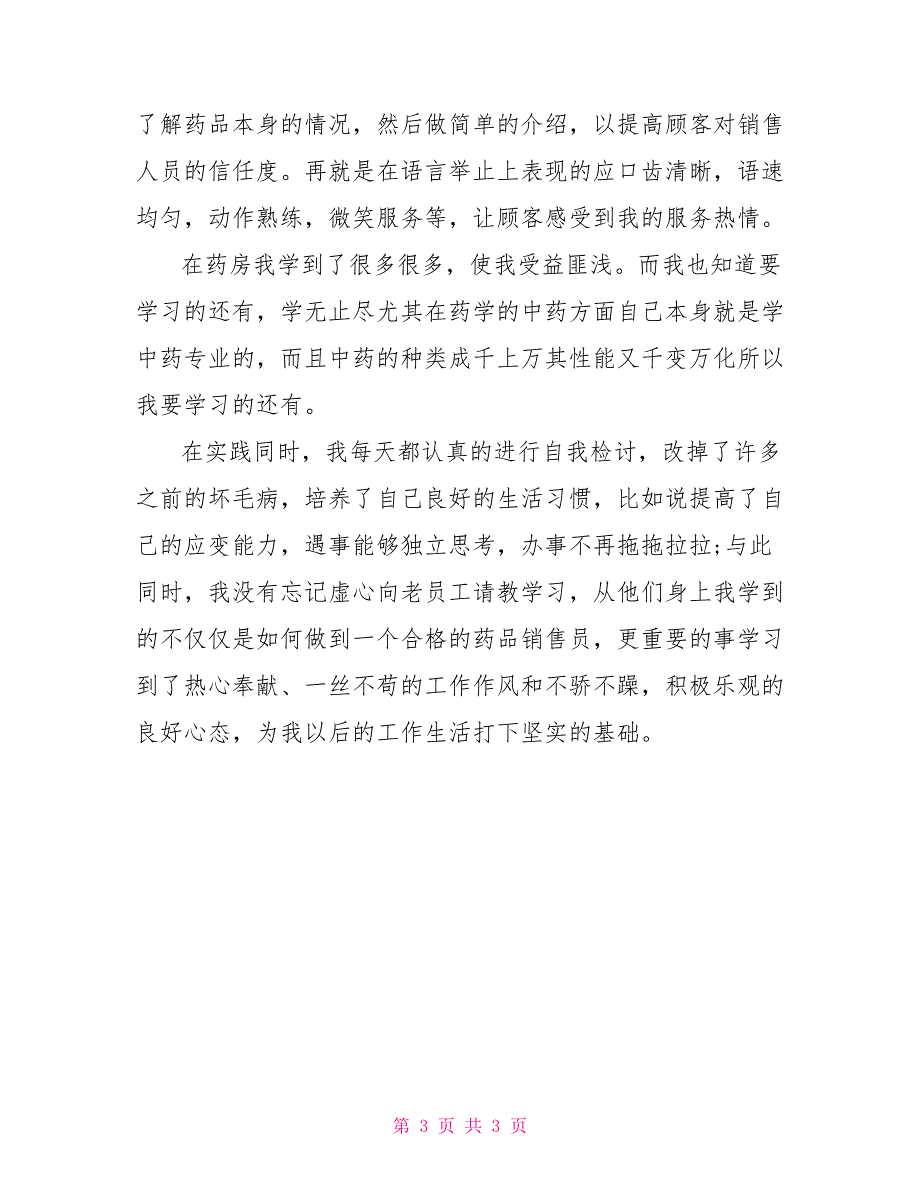 了解药品本身的情况，然后做简单的介绍，以提高顾客对销售
人员的信任度。再就是在语言举止上表现的应口齿清晰，语速
均匀，动作熟练，微笑服务等，让顾客感受到我的服务热情。
在药房我学到了很多很多，使我受益匪浅。而我也知道要
学习的还有，学无止尽尤其在药学的中药方面自己本身就是学
中药专业的，而且中药的种类成千上万其性能又千变万化所以
我要学习的还有。
在实践同时，我每天都认真的进行自我检讨，改掉了许多
之前的坏毛病，培养了自己良好的生活习惯，比如说提高了自
己的应变能力，遇事能够独立思考，办事不再拖拖拉拉;与此
同时，我没有忘记虚心向老员工请教学习，从他们身上我学到
的不仅仅是如何做到一个合格的药品销售员，更重要的事学习
到了热心奉献、一丝不苟的工作作风和不骄不躁，积极乐观的
良好心态，为我以后的工作生活打下坚实的基础。
第 3 页 共 3 页